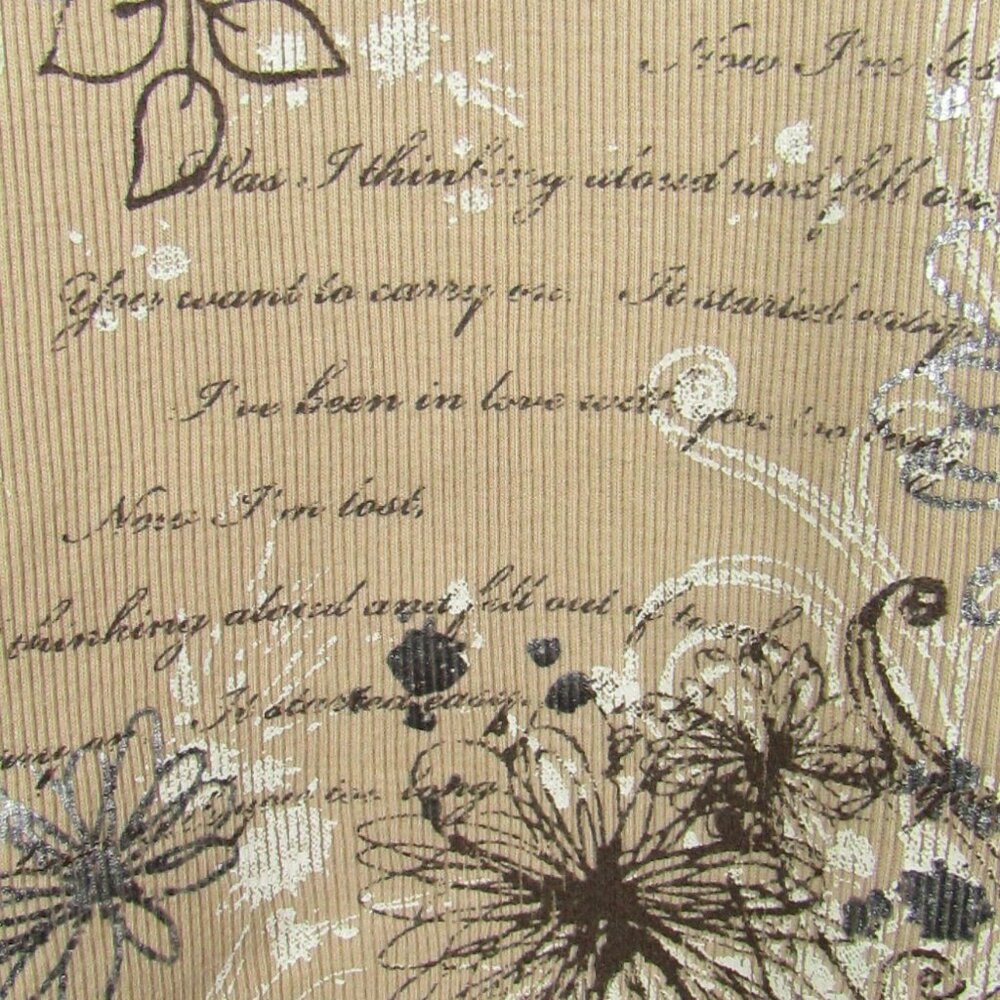 Now I'm los
Was I thinking aloud and fell ou
You want to carry on. It started easy
I've been in love with you too long
Now I'm lost,
thinking aloud and fell out of touch
It started easy,
too long